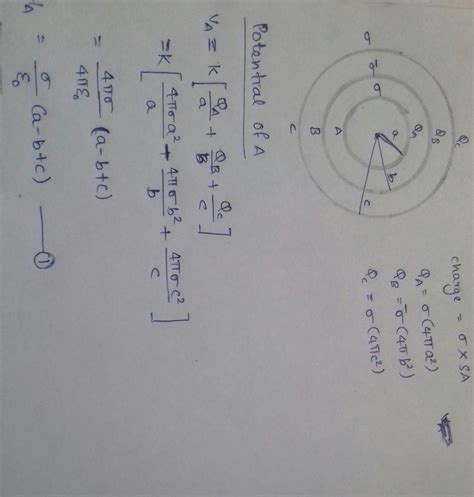 charge = σ × SA
Q_A = σ(4πa²)
Q_B = σ̄(4πb²)
Q_C = σ(4πc²)
Q_C
Q_B
Q_A
a
b
c
σ
σ̄
σ
A
B
C
Potential of A
V_A = K[Q_A/a + Q_B/B + Q_C/c]
= K[4πσa²/a + 4πσb²/b + 4πσc²/c]
= 4πσ/4πε₀ (a-b+c)
V_A = σ/ε₀ (a-b+c) — ①